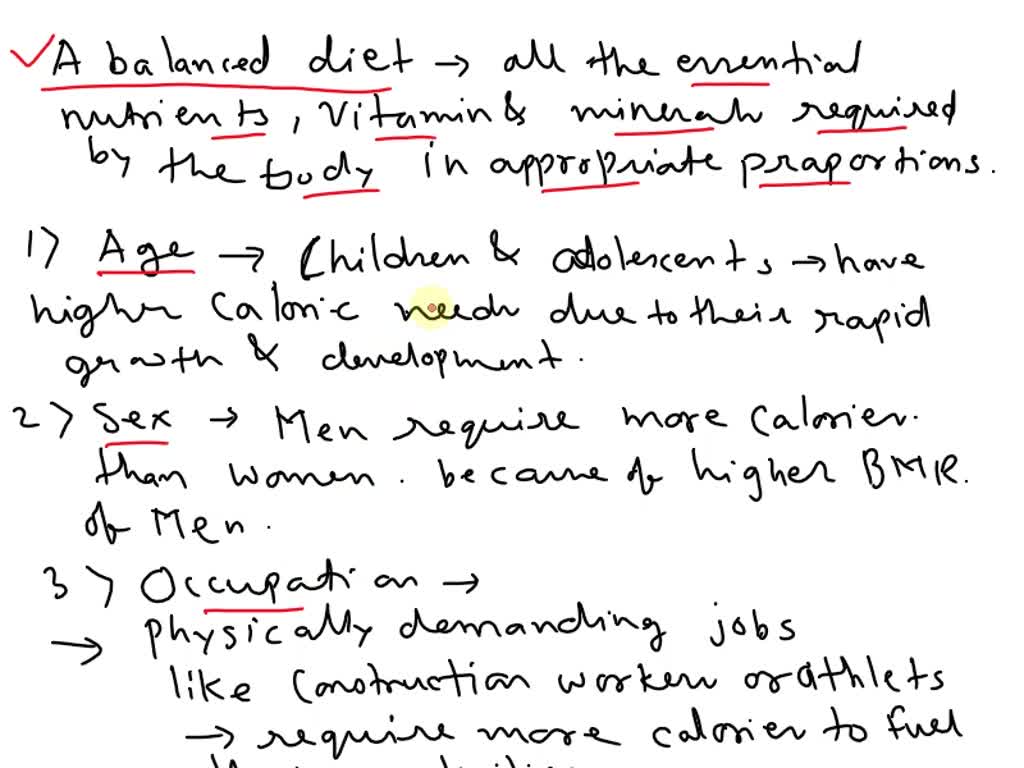 A balanced diet → all the essential
nutrients, Vitamin & minerals required
by the body in appropriate praportions.
1) Age → Children & adolescents → have
higher Caloric needs due to their rapid
growth & development.
2) Sex → Men require more Calories.
than women. because of higher BMR.
of Men.
3) Occupation →
→ physically demanding jobs
like Construction workers or athlets
→ require more calories to fuel